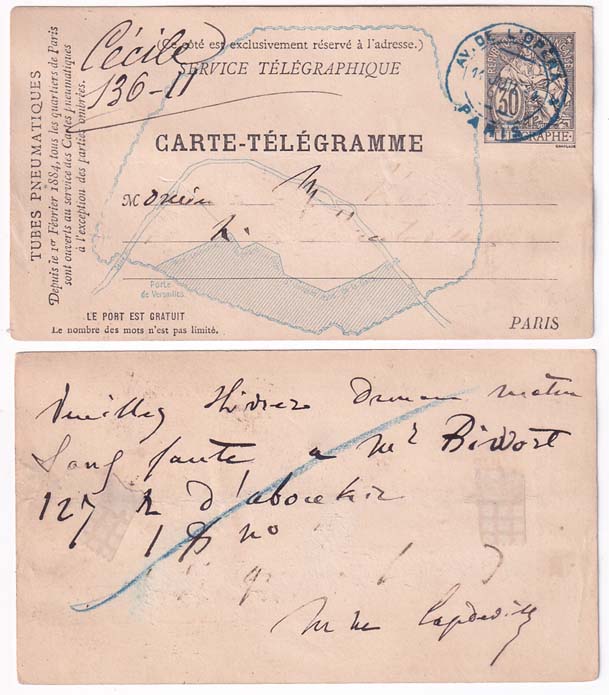 TUBES PNEUMATIQUES
Depuis le 1er Février 1884, tous les quartiers de Paris
sont ouverts au service des Cartes pneumatiques
à l'exception des parties ombrées.
Cécile
136-11
(Ce côté est exclusivement réservé à l'adresse.)
SERVICE TÉLÉGRAPHIQUE
AV. DE L'OPÉRA
PARIS
30
CARTE-TÉLÉGRAMME
Porte
de Versailles
LE PORT EST GRATUIT
Le nombre des mots n'est pas limité.
PARIS
Veuillez livrer Demain matin
Sans faute, a Mr Biwort
127 R d'aboukir
1 P no
Mme